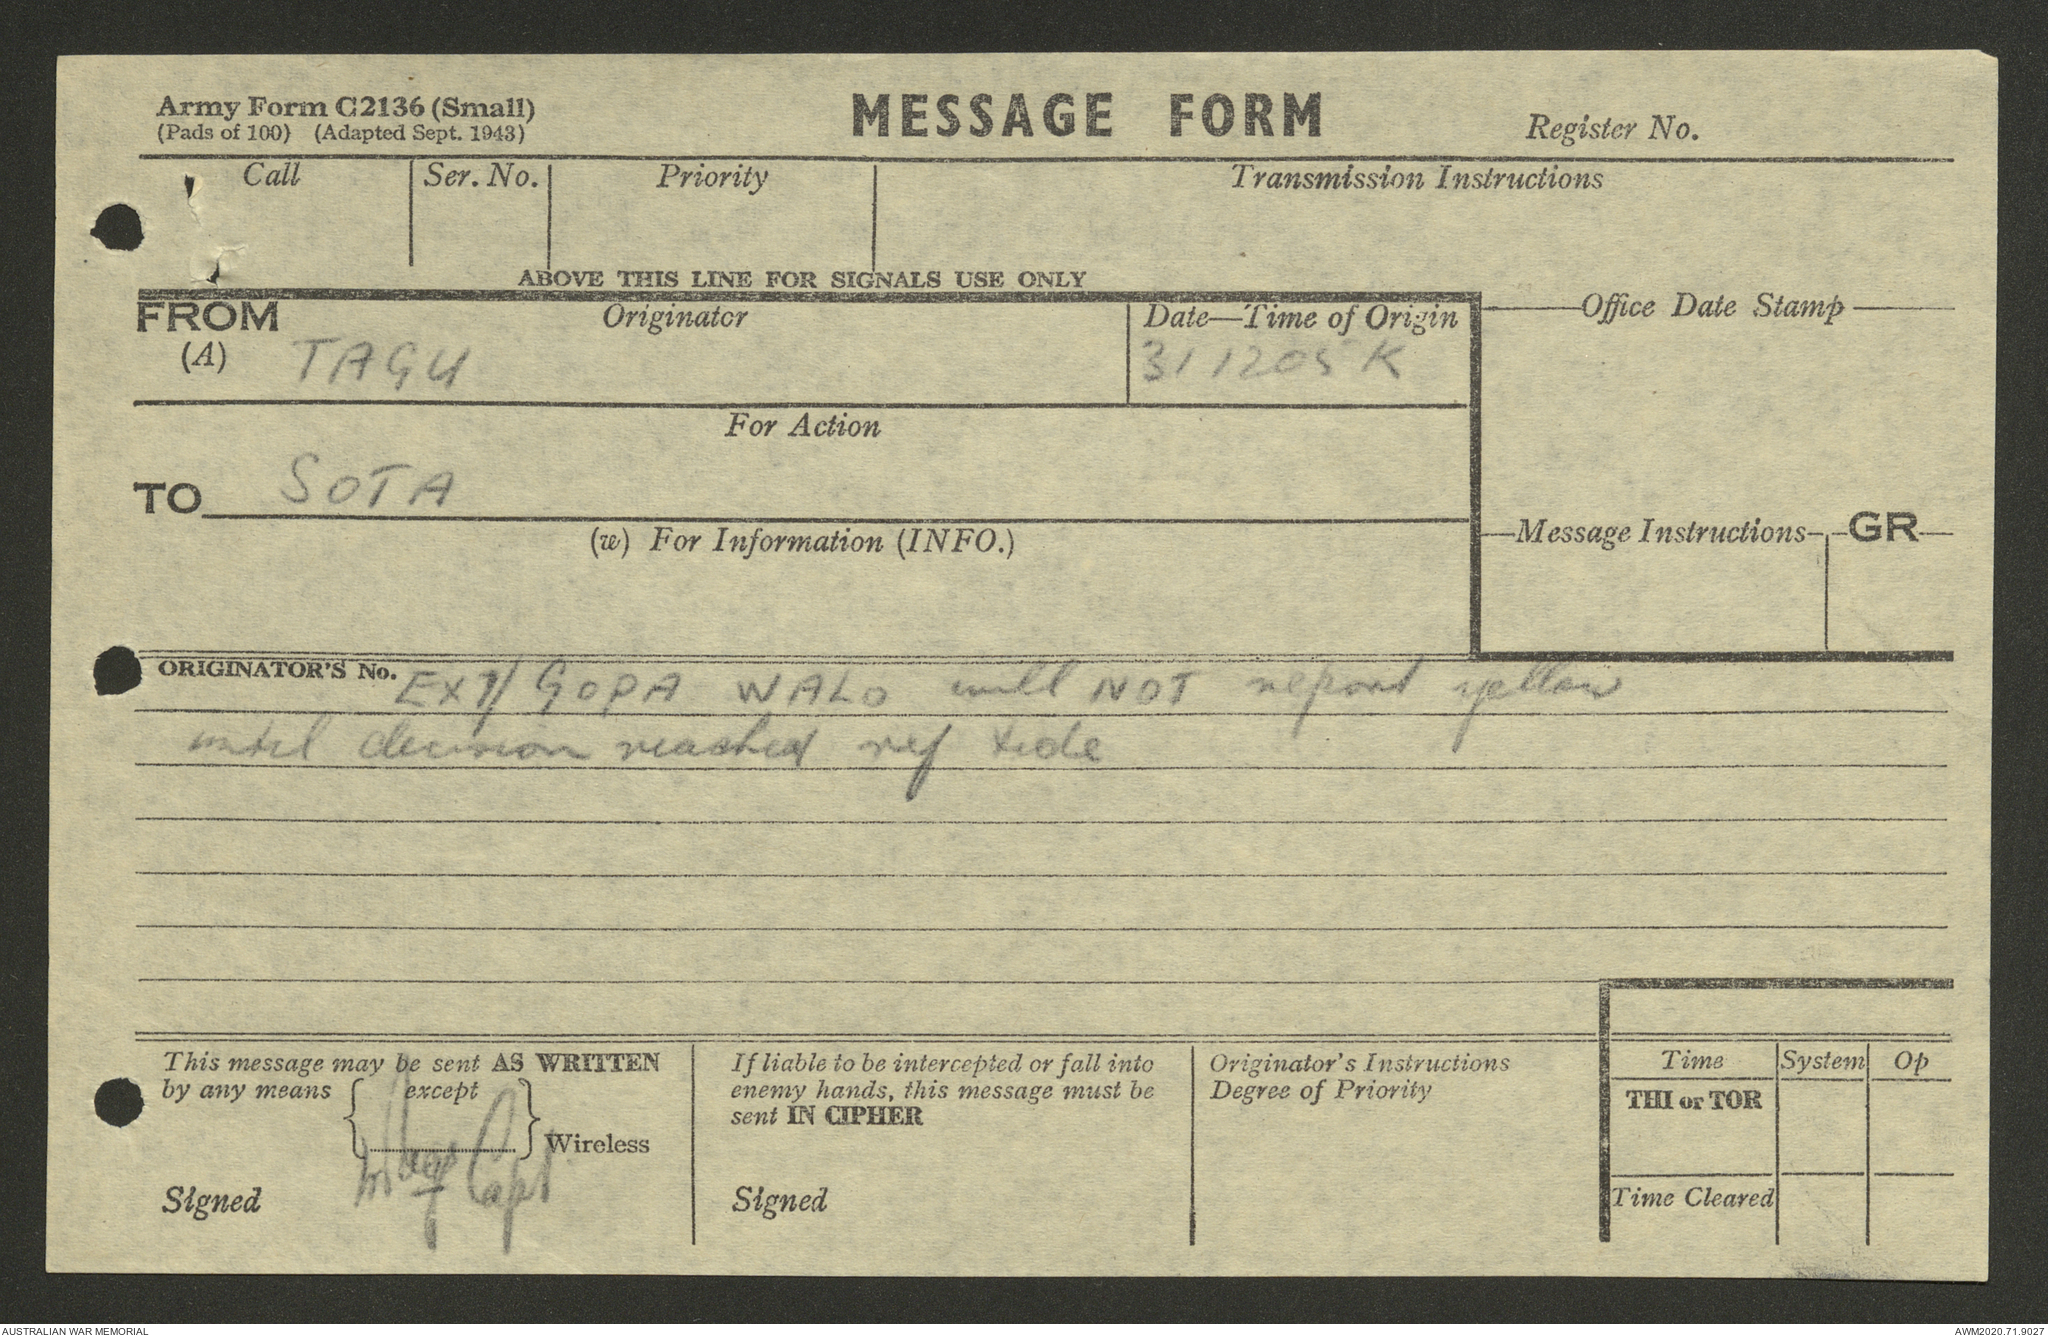 Army Form C2136 (Small)
(Pads of 100) (Adapted Sept. 1943)
MESSAGE FORM
Register No.
Call
Ser. No.
Priority
Transmission Instructions
ABOVE THIS LINE FOR SIGNALS USE ONLY
FROM
(A)
Originator
TAGU
Date—Time of Origin
311205K
Office Date Stamp
For Action
TO
SOTA
(w) For Information (INFO.)
Message Instructions
GR
ORIGINATOR'S No.
GOPA WALO will NOT report yellow
until decision reached ref tide
This message may be sent AS WRITTEN
by any means { except } Wireless
Signed
Capt
If liable to be intercepted or fall into
enemy hands, this message must be
sent IN CIPHER
Signed
Originator's Instructions
Degree of Priority
Time
System
Op
THI or TOR
Time Cleared
AUSTRALIAN WAR MEMORIAL
AWM2020.71.9027